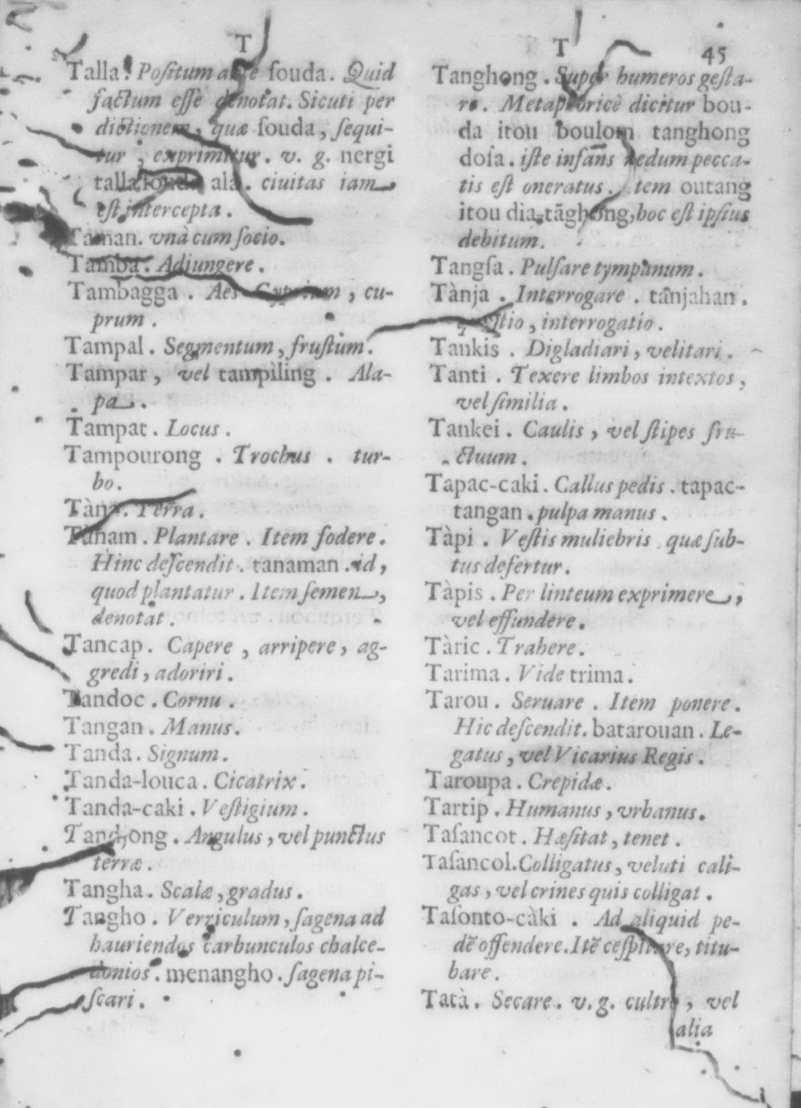 T
Talla. Poſitum ante ſouda. Quid
factum eſſe denotat. Sicuti per
dictionem, quæ ſouda, ſequi-
tur, exprimitur. v. g. nergi
talla ſouda ala. ciuitas iam
eſt intercepta.
Taman. vnà cum ſocio.
Tamba. Adiungere.
Tambagga. Aes Cyprium, cu-
prum.
Tampal. Segmentum, fruſtum.
Tampar, vel tampiling. Ala-
pa.
Tampat. Locus.
Tampourong. Trochus. tur-
bo.
Tàna. Terra.
Tànam. Plantare. Item fodere.
Hinc deſcendit. tanaman. id,
quod plantatur. Item ſemen,
denotat.
Tancap. Capere, arripere, ag-
gredi, adoriri.
Tandoc. Cornu.
Tangan. Manus.
Tanda. Signum.
Tanda-louca. Cicatrix.
Tanda-caki. Veſtigium.
Tandjong. Angulus, vel punctus
terræ.
Tangha. Scalæ, gradus.
Tangho. Verriculum, ſagena ad
hauriendos carbunculos chalce-
donios. menangho. ſagena pi-
ſcari.
T 45
Tanghong. Super humeros geſta-
re. Metaphoricè dicitur bou-
da itou boulom tanghong
doſa. iſte infans nedum pecca-
tis eſt oneratus. Item outang
itou dia tāghong, hoc eſt ipſius
debitum.
Tangſa. Pulſare tympanum.
Tànja. Interrogare. tanjahan.
quæſtio, interrogatio.
Tankis. Digladiari, velitari.
Tanti. Texere limbos intextos,
vel ſimilia.
Tankei. Caulis, vel ſtipes fru-
ctuum.
Tapac-caki. Callus pedis. tapac-
tangan. pulpa manus.
Tàpi. Veſtis muliebris quæ ſub-
tus defertur.
Tàpis. Per linteum exprimere,
vel effundere.
Tàric. Trahere.
Tarima. Vide trima.
Tarou. Seruare. Item ponere.
Hic deſcendit. batarouan. Le-
gatus, vel Vicarius Regis.
Taroupa. Crepidæ.
Tartip. Humanus, vrbanus.
Taſancot. Hæſitat, tenet.
Taſancol. Colligatus, veluti cali-
gas, vel crines quis colligat.
Taſonto-càki. Ad aliquid pe-
dē offendere. Itē ceſpitare, titu-
bare.
Tatà. Secare. v. g. cultro, vel
alia